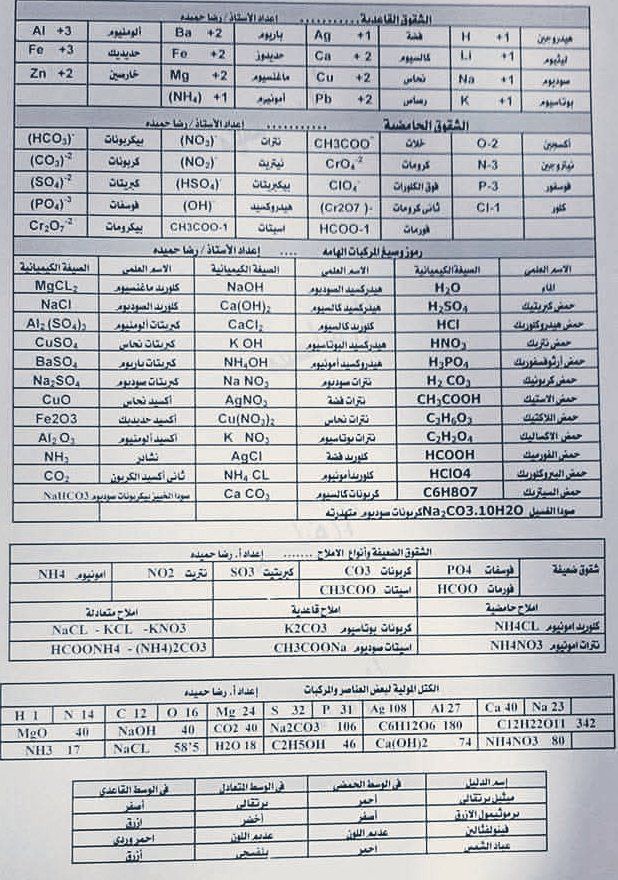 الشقوق القاعدية ............ إعداد الأستاذ/ رضا حميده
هيدروجين H +1 فضة Ag +1 باريوم Ba +2 ألومنيوم Al +3
ليثيوم Li +1 كالسيوم Ca + 2 حديدوز Fe +2 حديديك Fe +3
صوديوم Na +1 نحاس Cu +2 ماغنسيوم Mg +2 خارصين Zn +2
بوتاسيوم K +1 رصاص Pb +2 أمونيوم (NH₄) +1
الشقوق الحامضية ............ إعداد الأستاذ/ رضا حميده
أكسوجين O-2 خلات CH3COO⁻ نترات (NO₃)⁻ بيكربونات (HCO₃)⁻
نيتروجين N-3 كرومات CrO₄⁻² نيتريت (NO₂)⁻ كربونات (CO₃)⁻²
فوسفور P-3 فوق الكلورات ClO₄⁻ بيكبريتات (HSO₄)⁻ كبريتات (SO₄)⁻²
كلور Cl-1 ثانى كرومات (Cr2O7 )- هيدروكسيد (OH)⁻ فوسفات (PO₄)⁻³
فورمات HCOO-1 اسيتات CH3COO-1 بيكرومات Cr₂O₇⁻²
رموز وصيغ المركبات الهامه .... إعداد الأستاذ/ رضا حميده
الاسم العلمى الصيغة الكيميائية الاسم العلمى الصيغة الكيميائية الاسم العلمى الصيغة الكيميائية
الماء H₂O هيدركسيد الصوديوم NaOH كلوريد ماغنسيوم MgCL₂
حمض كبريتيك H₂SO₄ هيدركسيد كالسيوم Ca(OH)₂ كلوريد الصوديوم NaCl
حمض هيدروكلوريك HCl كلوريد كالسيوم CaCl₂ كبريتات ألومنيوم Al₂ (SO₄)₃
حمض نتريك HNO₃ هيدركسيد البوتاسيوم K OH كبريتات نحاس CuSO₄
حمض أرثوفسفوريك H₃PO₄ هيدركسيد أمونيوم NH₄OH كبريتات باريوم BaSO₄
حمض كربونيك H₂ CO₃ نترات سوديوم Na NO₃ كبريتات سوديوم Na₂SO₄
حمض الاستيك CH₃COOH نترات فضة AgNO₃ أكسيد نحاس CuO
حمض اللاكتيك C₃H₆O₃ نترات نحاس Cu(NO₃)₂ أكسيد حديديك Fe2O3
حمض الاكساليك C₂H₂O₄ نترات بوتاسيوم K NO₃ أكسيد ألومنيوم Al₂ O₃
حمض الفورميك HCOOH كلوريد فضة AgCl نشادر NH₃
حمض البيروكلوريك HClO4 كلوريد أمونيوم NH₄ CL ثانى أكسيد الكربون CO₂
حمض السيتريك C6H8O7 كربونات كالسيوم Ca CO₃ سودا الخبيز بيكربونات سوديوم NaHCO3
سودا الغسيل Na₂CO3.10H2O كربونات سوديوم متهدرته
الشقوق الضعيفة وأنواع الاملاح ....... إعداد أ. رضا حميده
شقوق ضعيفة فوسفات PO4 كربونات CO3 كبريتيت SO3 نتريت NO2 امونيوم NH4
فورمات HCOO اسيتات CH3COO
املاح حامضية املاح قاعدية املاح متعادلة
كلوريد امونيوم NH4CL كربونات بوتاسيوم K2CO3 NaCL - KCL -KNO3
نترات امونيوم NH4NO3 اسيتات سوديوم CH3COONa HCOONH4 - (NH4)2CO3
الكتل المولية لبعض العناصر والمركبات إعداد أ. رضا حميده
H 1 N 14 C 12 O 16 Mg 24 S 32 P 31 Ag 108 Al 27 Ca 40 Na 23
MgO 40 NaOH 40 CO2 40 Na2CO3 106 C6H12O6 180 C12H22O11 342
NH3 17 NaCL 58'5 H2O 18 C2H5OH 46 Ca(OH)2 74 NH4NO3 80
إسم الدليل فى الوسط الحمضى فى الوسط المتعادل فى الوسط القاعدى
ميثيل برتقالى احمر برتقالى أصفر
برموثيمول الازرق أصفر أخضر ازرق
فينولفثالين عديم اللون عديم اللون احمر وردى
عباد الشمس احمر بنفسجى أزرق